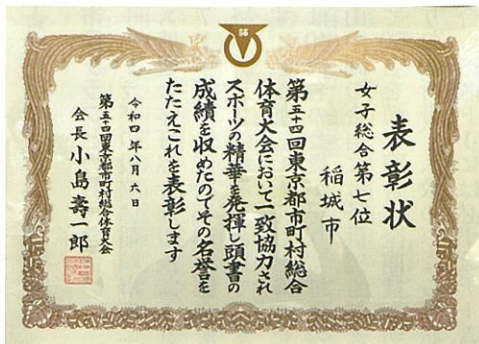 表彰状
女子総合第七位
稲城市
第五十四回東京都市町村総合
体育大会において一致協力され
スポーツの精華を発揮し頭書の
成績を収めたのでその名誉を
たたえこれを表彰します
令和四年八月六日
第五十四回東京都市町村総合体育大会
会長 小島壽一郎